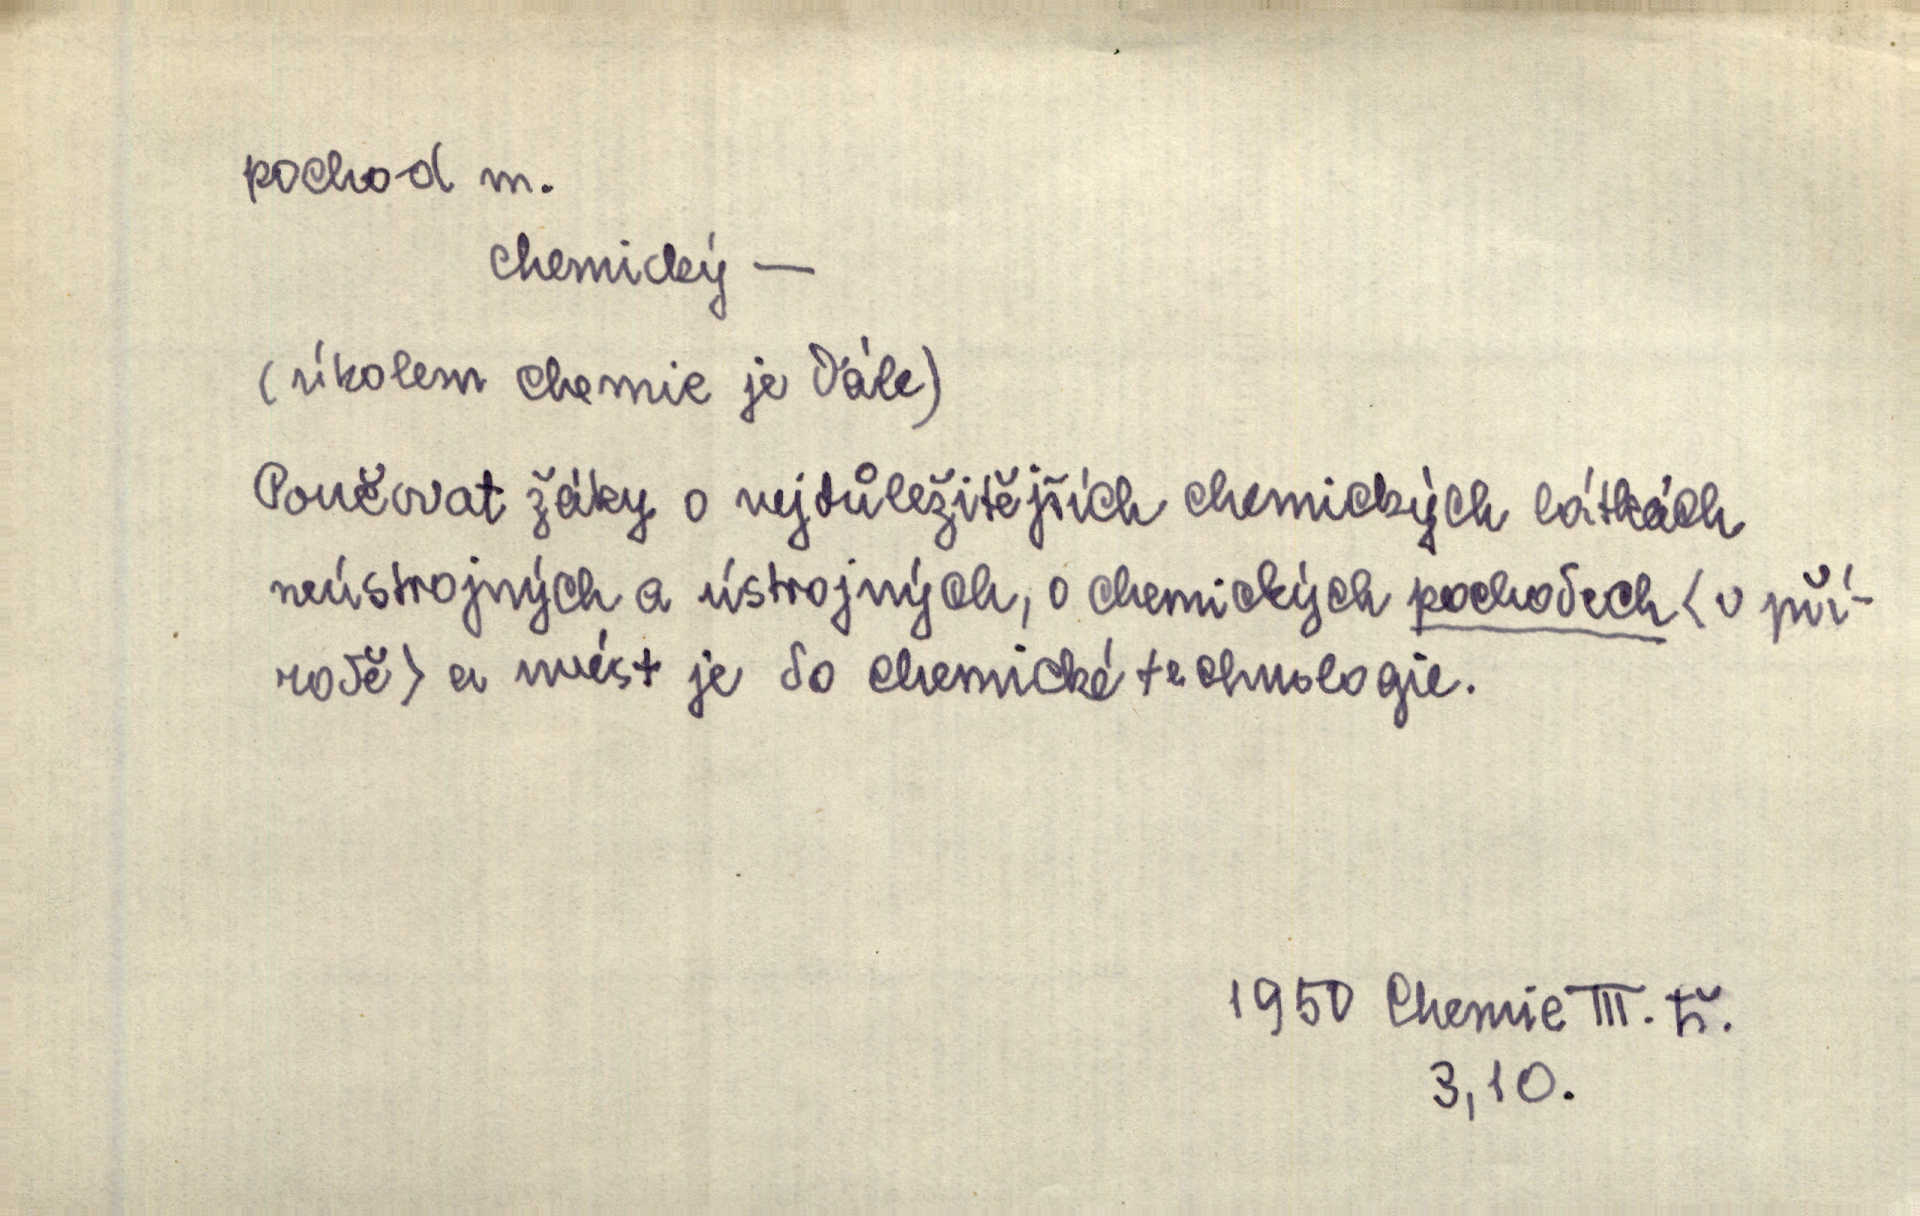 pochod m.
chemický —
(úkolem chemie je dále)
Poučovat žáky o nejdůležitějších chemických látkách
neústrojných a ústrojných, o chemických pochodech <v pří-
rodě> a uvést je do chemické technologie.
1950 Chemie III. tř.
3,10.